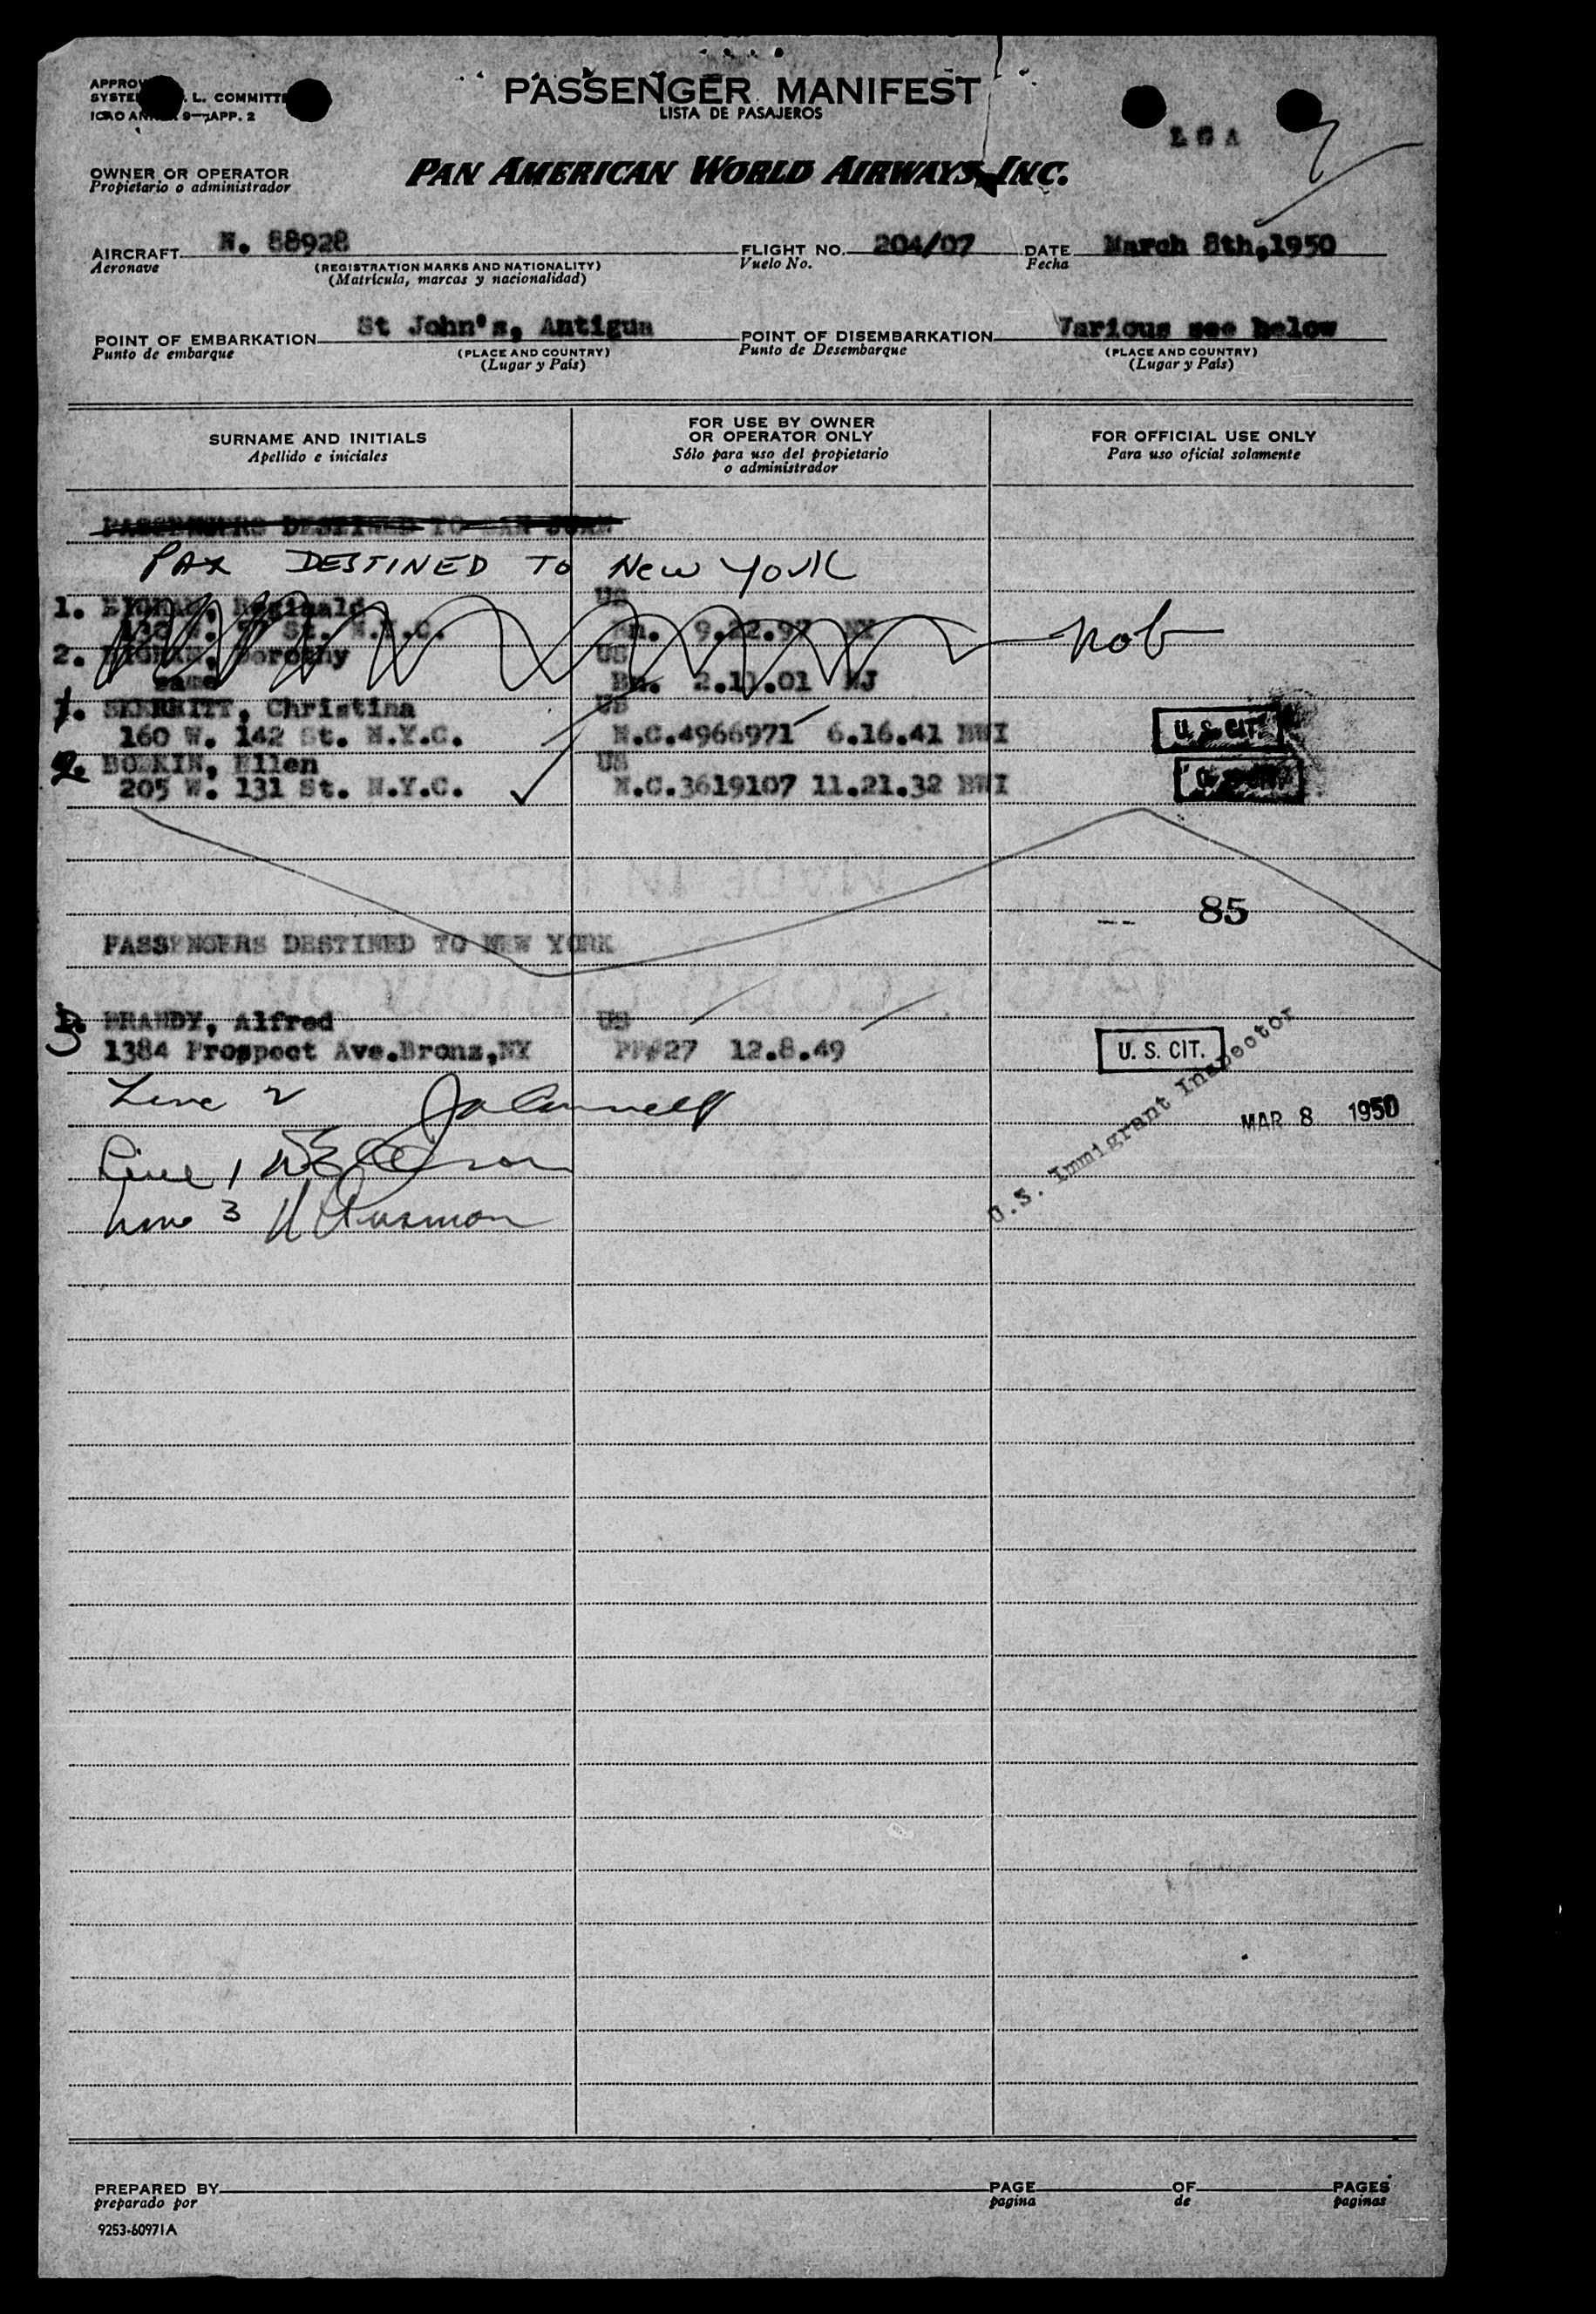 PASSENGER MANIFEST
LISTA DE PASAJEROS
L. COMMITT
9—APP. 2
L G A
OWNER OR OPERATOR
Propietario o administrador
PAN AMERICAN WORLD AIRWAYS, INC.
AIRCRAFT N. 88928 FLIGHT NO. 204/07 DATE March 8th,1950
Aeronave (REGISTRATION MARKS AND NATIONALITY) Vuelo No. Fecha
(Matrícula, marcas y nacionalidad)
POINT OF EMBARKATION St John's, Antigua POINT OF DISEMBARKATION Various see below
Punto de embarque (PLACE AND COUNTRY) Punto de Desembarque (PLACE AND COUNTRY)
(Lugar y País) (Lugar y País)
SURNAME AND INITIALS FOR USE BY OWNER OR OPERATOR ONLY FOR OFFICIAL USE ONLY
Apellido e iniciales Sólo para uso del propietario o administrador Para uso oficial solamente
PASSENGERS DESTINED TO SAN JUAN
PAX DESTINED TO New York
1. Reginald US
W. St. N.Y.C. Bn. 9.22.97 NY
2. Dorothy US nob
same Bn. 2.11.01 NJ
1. SKERRITT, Christina US
160 W. 142 St. N.Y.C. N.C.4966971 6.16.41 BWI U. S. CIT.
2. Ellen US
205 W. 131 St. N.Y.C. N.C.3619107 11.21.32 BWI
85
PASSENGERS DESTINED TO NEW YORK
3. BRANDY, Alfred US
1384 Prospect Ave.Bronx,NY PP#27 12.8.49 U. S. CIT.
Line 2
MAR 8 1950
Line 1
U.S. Immigrant Inspector
Line 3
PREPARED BY PAGE OF PAGES
preparado por pagina de paginas
9253-60971A